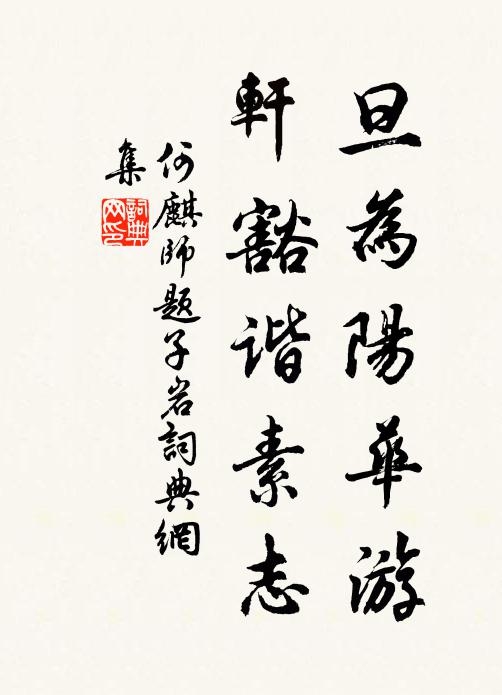 旦為陽華游
軒豁谐素志
何麒師題子岩詞典網
集
詞典
网印